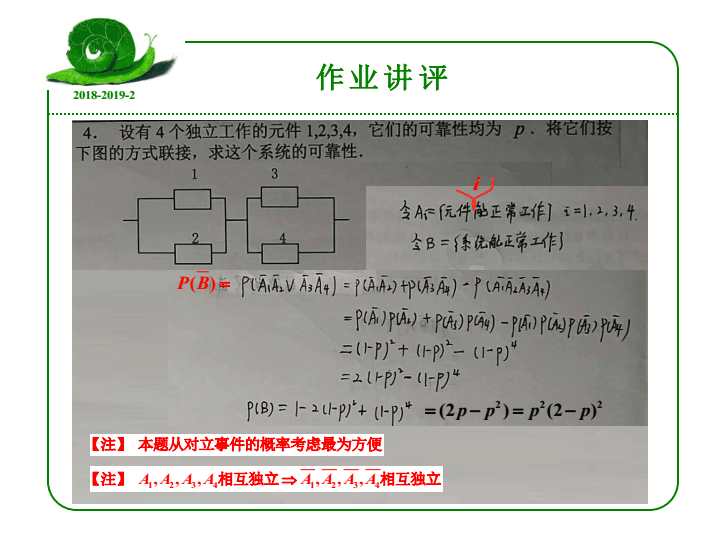 作业讲评
2018-2019-2
4. 设有 4 个独立工作的元件 1,2,3,4，它们的可靠性均为 p．将它们按
下图的方式联接，求这个系统的可靠性．
1 3
2 4
i
令 Aᵢ={元件能正常工作} i=1,2,3,4.
令 B={系统能正常工作}
P(B̅)= P(A̅₁A̅₂∪A̅₃A̅₄)=P(A̅₁A̅₂)+P(A̅₃A̅₄)-P(A̅₁A̅₂A̅₃A̅₄)
=P(A̅₁)P(A̅₂)+P(A̅₃)P(A̅₄)-P(A̅₁)P(A̅₂)P(A̅₃)P(A̅₄)
=(1-p)²+(1-p)²-(1-p)⁴
=2(1-p)²-(1-p)⁴
P(B)=1-2(1-p)²+(1-p)⁴ =(2p-p²)=p²(2-p)²
【注】 本题从对立事件的概率考虑最为方便
【注】 A₁,A₂,A₃,A₄相互独立⇒A̅₁,A̅₂,A̅₃,A̅₄相互独立